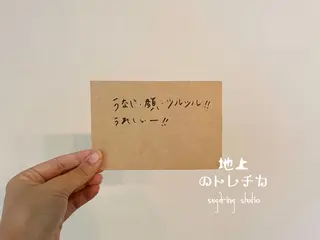 うなじ・顔・ツルツル!!
うれしいー!!
地上
のトレチカ
sugaring studio